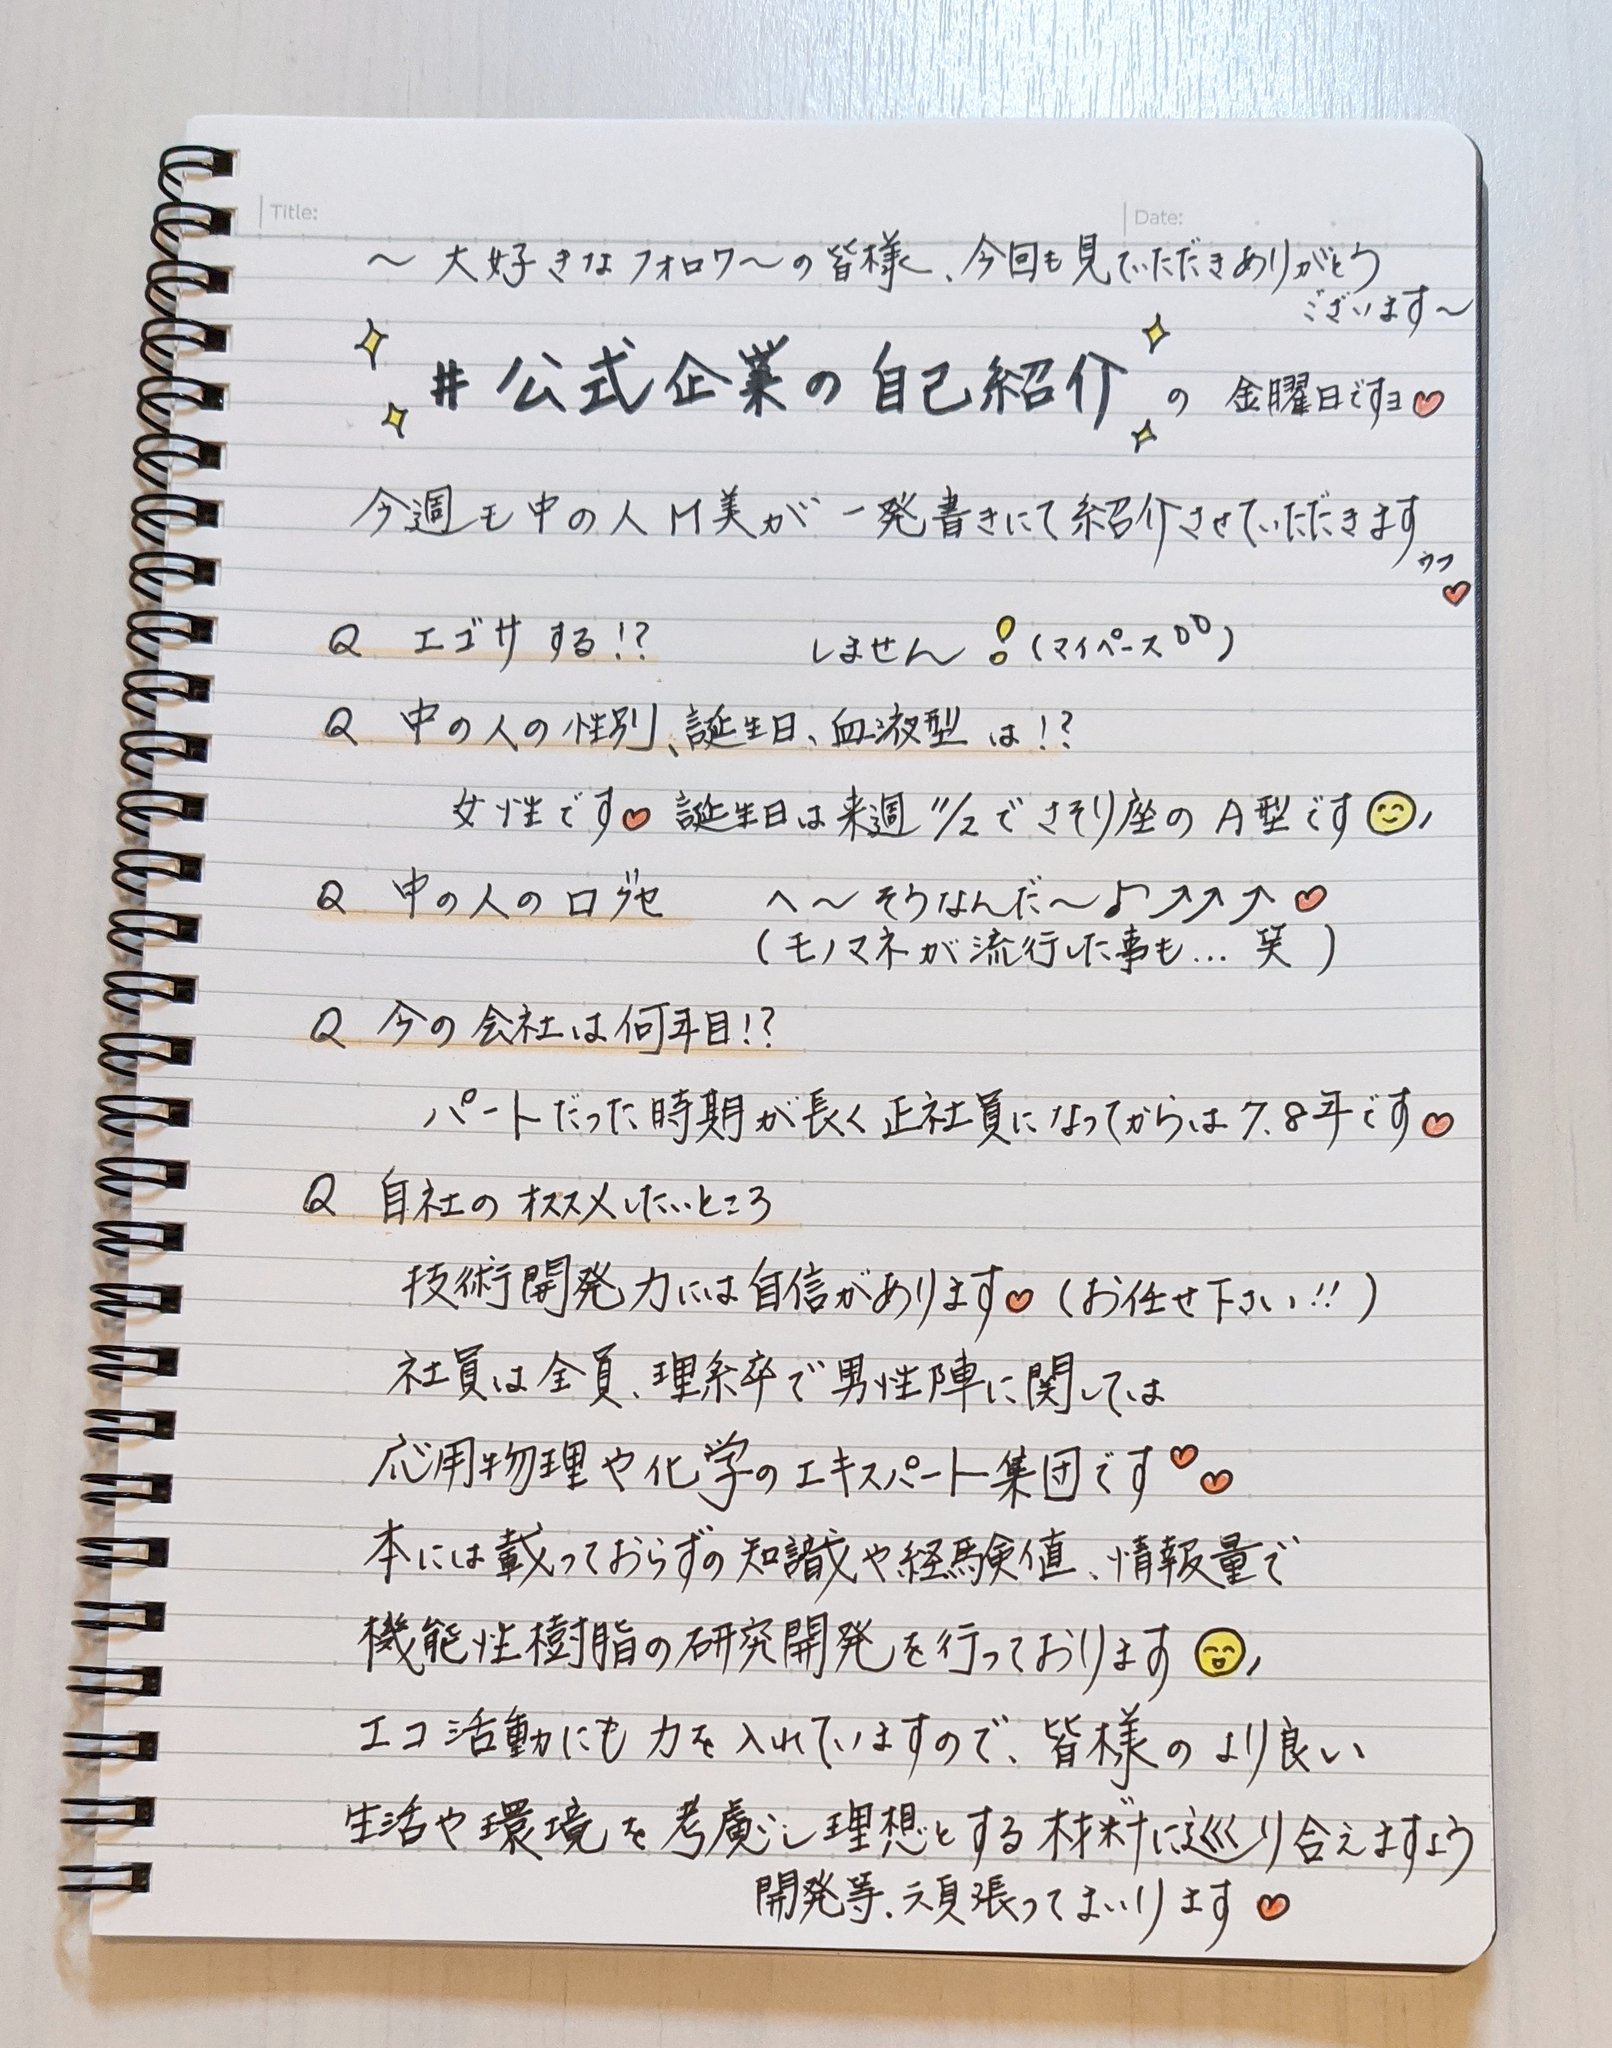 Title:
Date:
～大好きなフォロワ～の皆様へ、今回も見ていただきありがとう
ございます～
#公式企業の自己紹介の金曜日ですヨ
今週も中の人M美が一発書きにて紹介させていただきます
ウフ
Q エゴサする!? しません!(マイペース)
Q 中の人の性別、誕生日、血液型は!?
女性です 誕生日は来週11/2でさそり座のA型です
Q 中の人の口グセ へ～そうなんだ～♪↗↗↗
(モノマネが流行した事も...笑)
Q 今の会社は何年目!?
パートだった時期が長く正社員になってからは7.8年です
Q 自社のオススメしたいところ
技術開発力には自信があります(お任せ下さい!!)
社員は全員、理系卒で男性陣に関しては
応用物理や化学のエキスパート集団です
本には載っておらずの知識や経験値、情報量で
機能性樹脂の研究開発を行っております
エコ活動にも力を入れていますので、皆様のより良い
生活や環境を考慮し理想とする材料に巡り合えますよう
開発等、頑張ってまいります